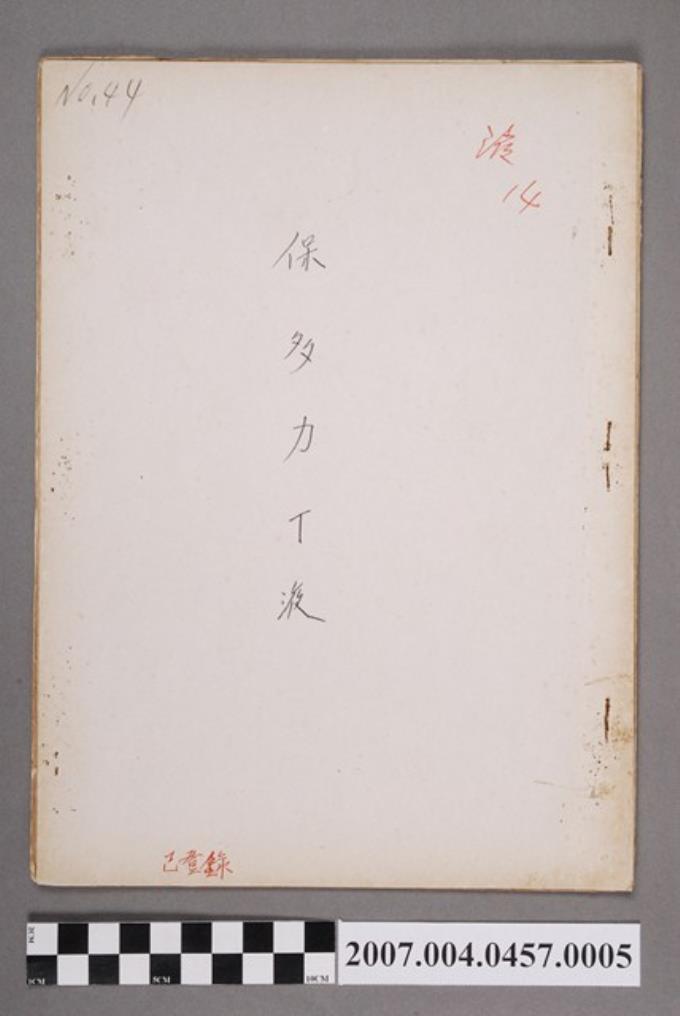 No.44
14
保多力丁液
已登錄
3CM
1CM
5CM
10CM
2007.004.0457.0005